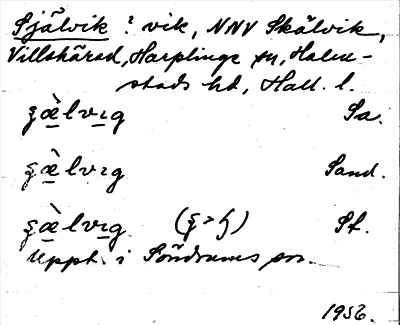 Självik ? vik, NNV Skälvik,
Villshärad, Harplinge sn, Halm-
stads hd, Hall. l.
ʂæ̀lvıg Sa.
ʂæ̀lvıg Sand.
ʂæ̀lvıg (ʂ>ɧ) St.
Uppt. i Söndrums sn.
1956.